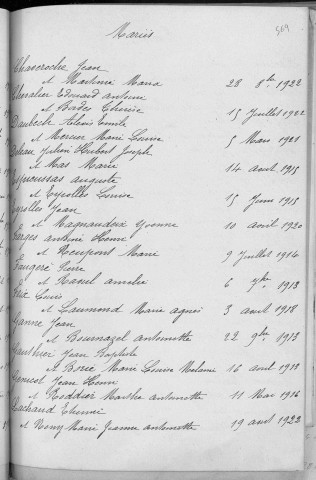 569
Mariés
Chaseroche Jean
et Martinie Maria 28 8bre 1922
Chevalier Edouard antoine
et Bades Thérèse 15 Juillet 1922
Daubech Alexis Emile
et Mercier Marie Louise 5 Mars 1921
Julien Hubert Joseph
et Mas Marie 14 août 1915
Espinoussas auguste
et Eyrolles Louise 15 Juin 1915
Eyrolles Jean
et Magnaudeix Yvonne 10 avril 1920
Farges antoine Henri
et Neupont Marie 9 Juillet 1916
Faugère Pierre
et Rasul amélie 6 7bre 1913
Louis
et Laumond Marie agnès 3 avril 1918
Ganne Jean
et Bournazel antoinette 22 9bre 1913
Gauthier Jean Baptiste
et Borie Marie Louise Melanie 16 avril
Genest Jean Henri
et Roddier Marthe antoinette 11 Mai 1916
Lachaud Etienne
et Neny Marie Jeanne antoinette 19 avril 1922